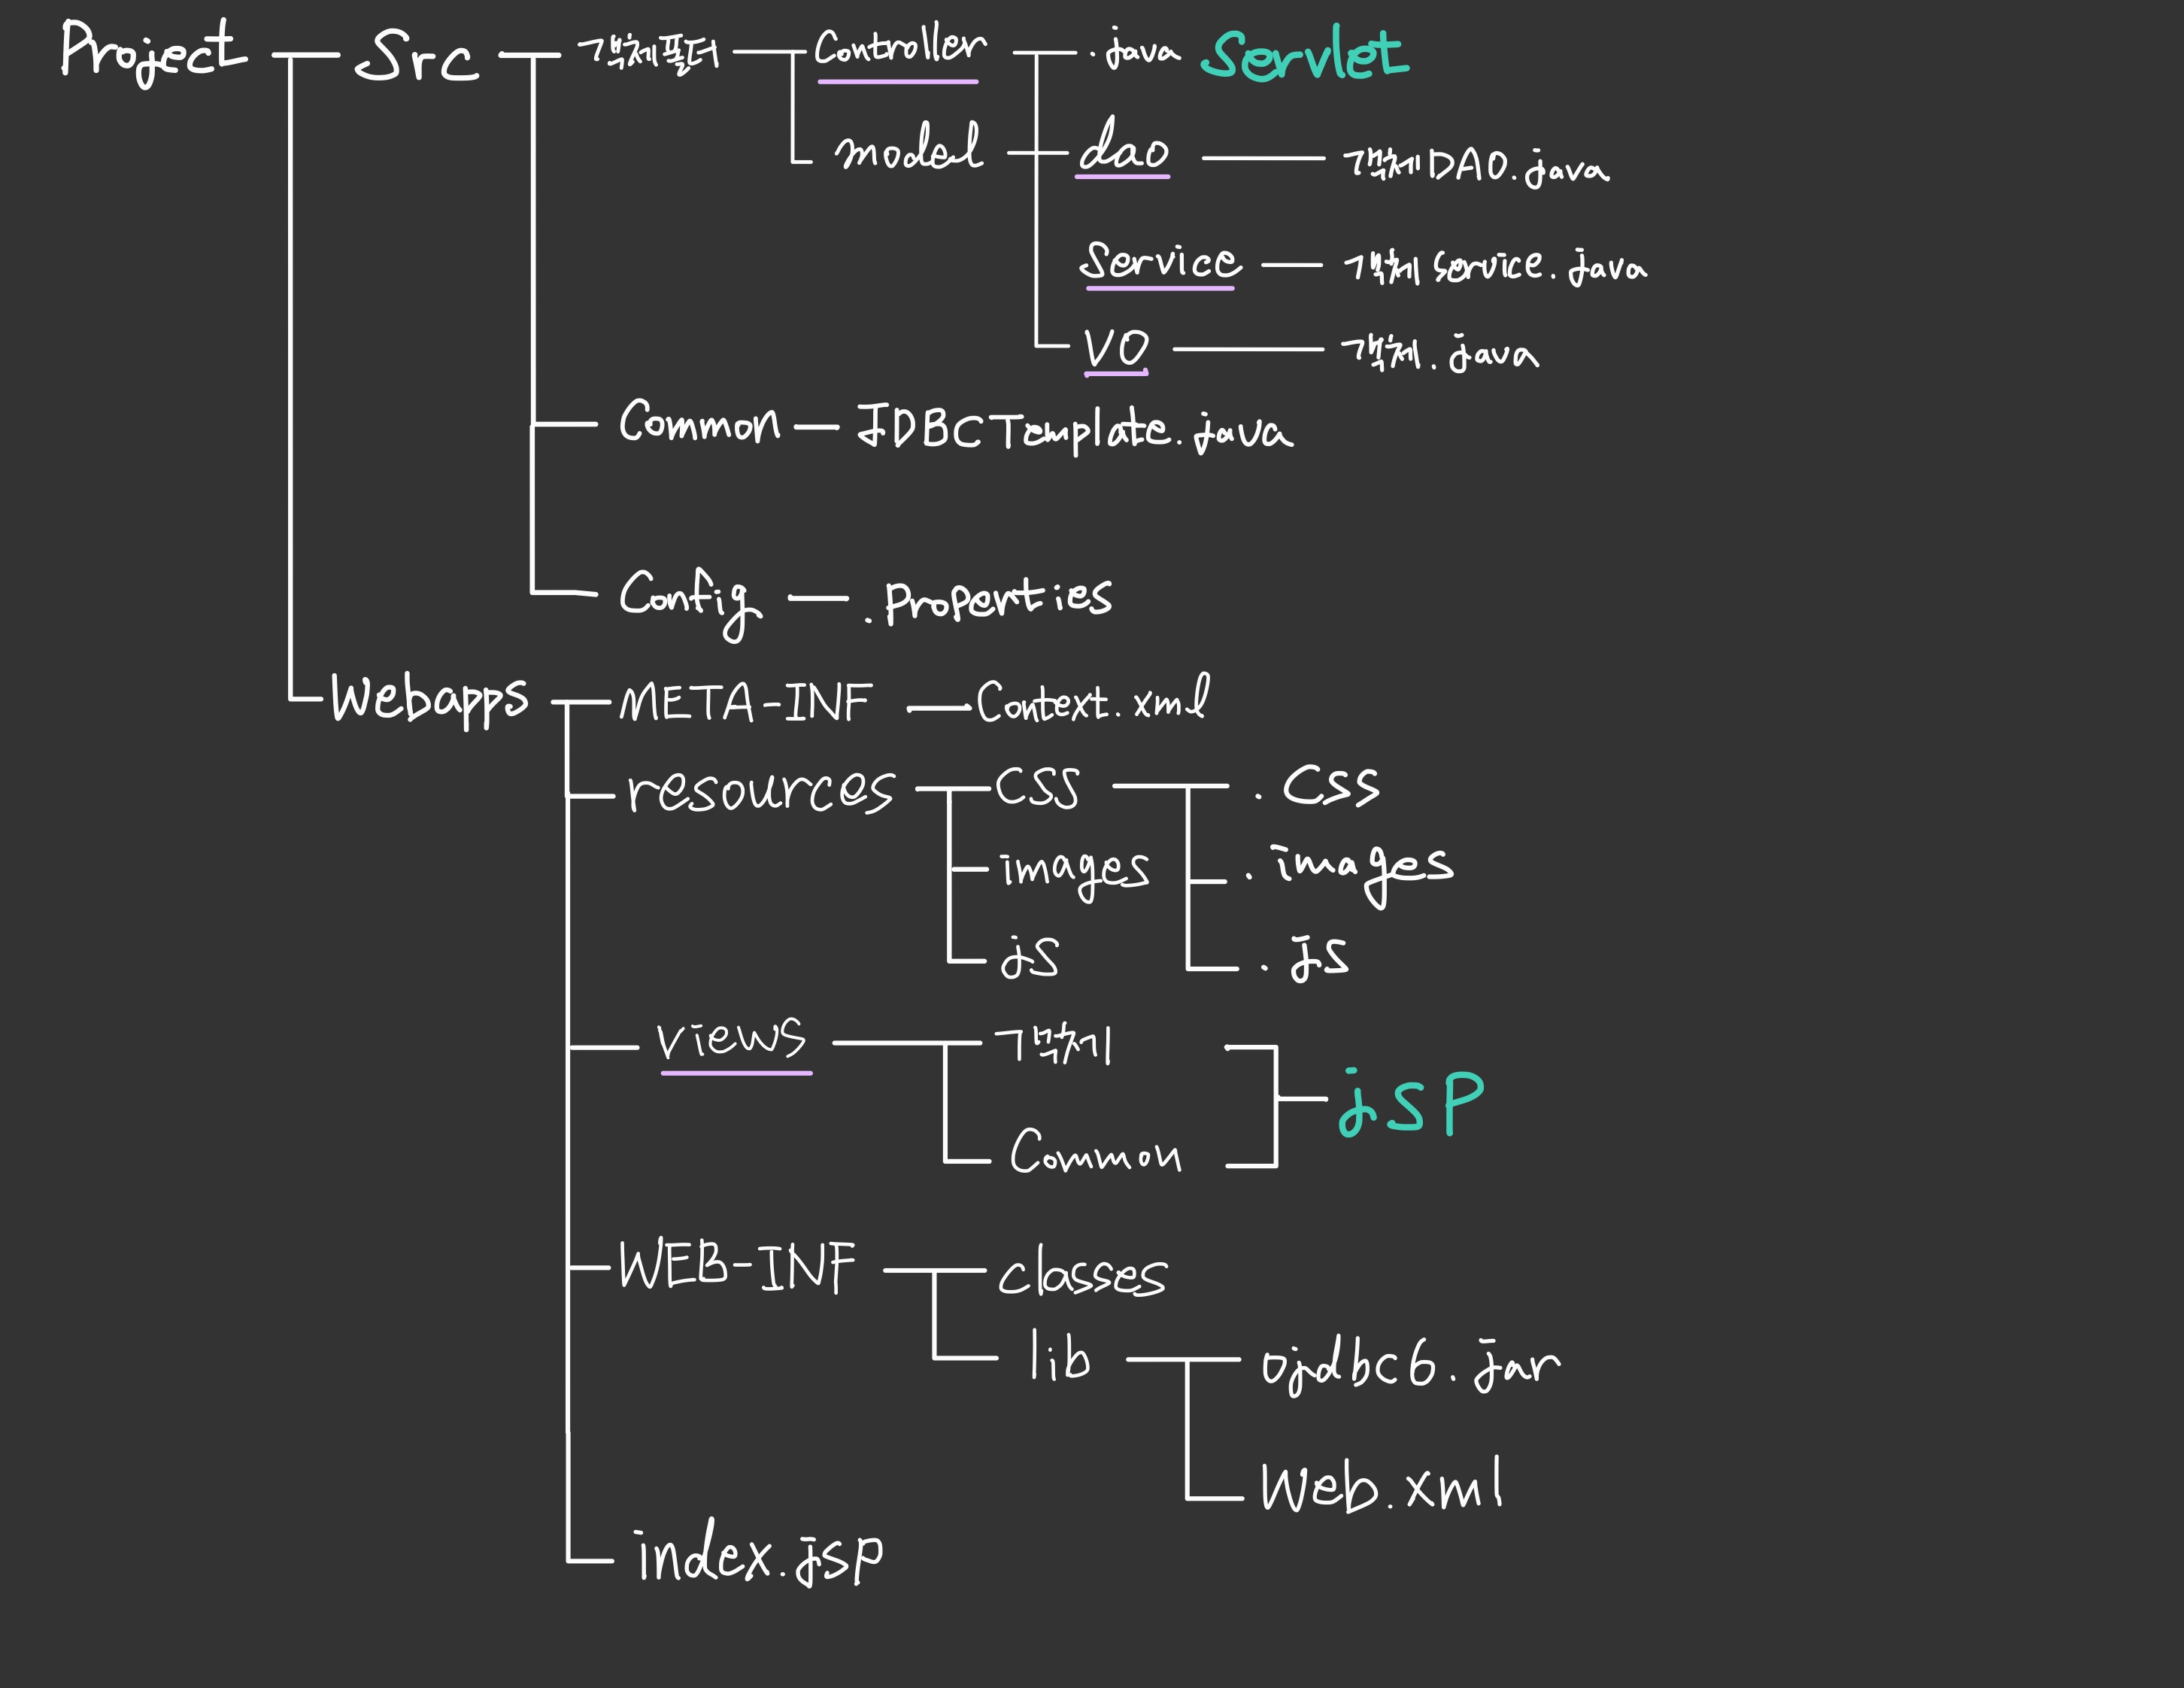 Project
Src
객체
Controller
.java
Servlet
model
dao
객체DAO.java
Service
객체Service.java
VO
객체.java
Common
JDBCTemplate.java
Config
.properties
Webapps
META-INF
Context.xml
resources
CSS
.Css
images
.images
js
.js
views
객체
jSP
Common
WEB-INF
classes
lib
ojdbc6.jar
Web.xml
index.jsp